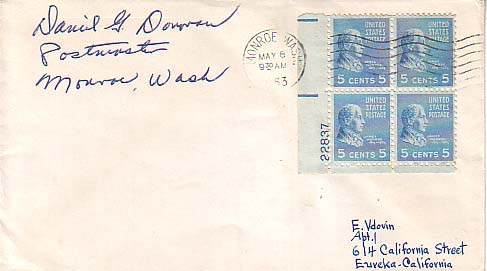 Daniel G. Donovan
Postmaster
Monroe, Wash
MONROE WASH.
MAY 6
9 30 AM
UNITED STATES POSTAGE
5 CENTS 5
UNITED STATES POSTAGE
5 CENTS 5
UNITED STATES POSTAGE
5 CENTS 5
UNITED STATES POSTAGE
5 CENTS 5
22837
E. Vdovin
Apt. 1
614 California Street
Eureka-California